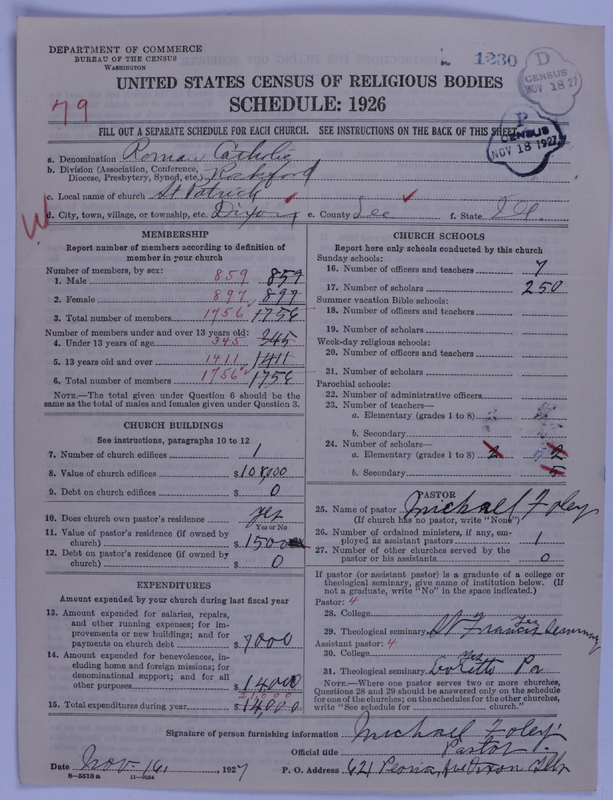 DEPARTMENT OF COMMERCE
BUREAU OF THE CENSUS
WASHINGTON
1230
D
CENSUS
NOV 18 27
UNITED STATES CENSUS OF RELIGIOUS BODIES
79
SCHEDULE: 1926
P
CENSUS
NOV 18 1927
FILL OUT A SEPARATE SCHEDULE FOR EACH CHURCH. SEE INSTRUCTIONS ON THE BACK OF THIS SHEET
a. Denomination Roman Catholic
b. Division (Association, Conference,
Diocese, Presbytery, Synod, etc.) Rockford
c. Local name of church St Patrick
d. City, town, village, or township, etc. Dixon e. County Lee f. State Ill.
MEMBERSHIP
Report number of members according to definition of
member in your church
Number of members, by sex:
1. Male 859 859
2. Female 897 897
3. Total number of members 1756 1756
Number of members under and over 13 years old:
4. Under 13 years of age 345 345
5. 13 years old and over 1411 1411
6. Total number of members 1756 1756
NOTE.—The total given under Question 6 should be the
same as the total of males and females given under Question 3.
CHURCH BUILDINGS
See instructions, paragraphs 10 to 12
7. Number of church edifices 1
8. Value of church edifices $
9. Debt on church edifices $ 0
10. Does church own pastor's residence yes
Yes or No
11. Value of pastor's residence (if owned by
church) $
12. Debt on pastor's residence (if owned by
church) $ 0
EXPENDITURES
Amount expended by your church during last fiscal year
13. Amount expended for salaries, repairs,
and other running expenses; for im-
provements or new buildings; and for
payments on church debt $ 7000
14. Amount expended for benevolences, in-
cluding home and foreign missions; for
denominational support; and for all
other purposes $ 14000
21,000
15. Total expenditures during year $ 14,000
CHURCH SCHOOLS
Report here only schools conducted by this church
Sunday schools:
16. Number of officers and teachers 7
17. Number of scholars 250
Summer vacation Bible schools:
18. Number of officers and teachers
19. Number of scholars
Week-day religious schools:
20. Number of officers and teachers
21. Number of scholars
Parochial schools:
22. Number of administrative officers
23. Number of teachers—
a. Elementary (grades 1 to 8)
b. Secondary
24. Number of scholars—
a. Elementary (grades 1 to 8) 2 2
b. Secondary 5
PASTOR
25. Name of pastor Michael Foley
(If church has no pastor, write "None")
26. Number of ordained ministers, if any, em-
ployed as assistant pastors 1
27. Number of other churches served by the
pastor or his assistants 0
If pastor (or assistant pastor) is a graduate of a college or
theological seminary, give name of institution below. (If
not a graduate, write "No" in the space indicated.)
Pastor: 4
28. College
29. Theological seminary St Francis Seminary
Assistant pastor: 4
30. College yes
31. Theological seminary Loretto Pa
NOTE.—Where one pastor serves two or more churches,
Questions 28 and 29 should be answered only on the schedule
for one of the churches; on the schedules for the other churches,
write "See schedule for church."
Signature of person furnishing information Michael Foley
Official title Pastor
Date Nov. 16, 1927 P. O. Address 621 Peoria Ave Dixon Ills
8—5518a 11—9054